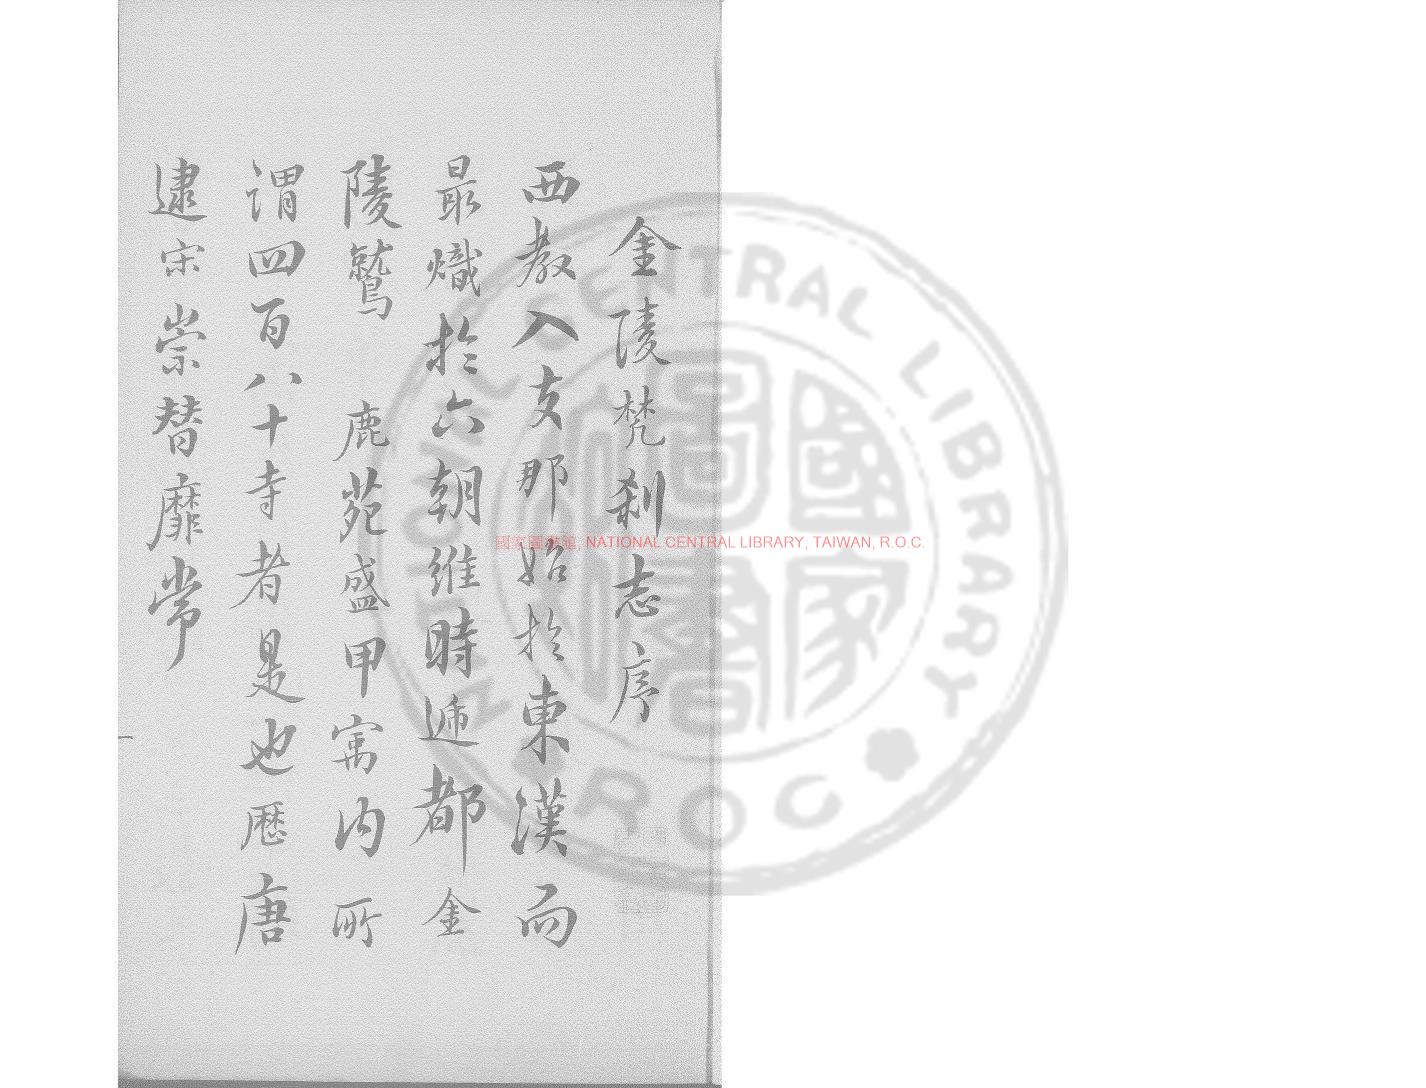 金陵梵刹志序
西教入支那始於東漢而
最熾於六朝維時遞都金
陵鷲 鹿苑盛甲寓内所
謂四百八十寺者是也歷唐
逮宋崇替靡常
國家圖書館, NATIONAL CENTRAL LIBRARY, TAIWAN, R.O.C.
NATIONAL CENTRAL LIBRARY
R O C
國家圖書